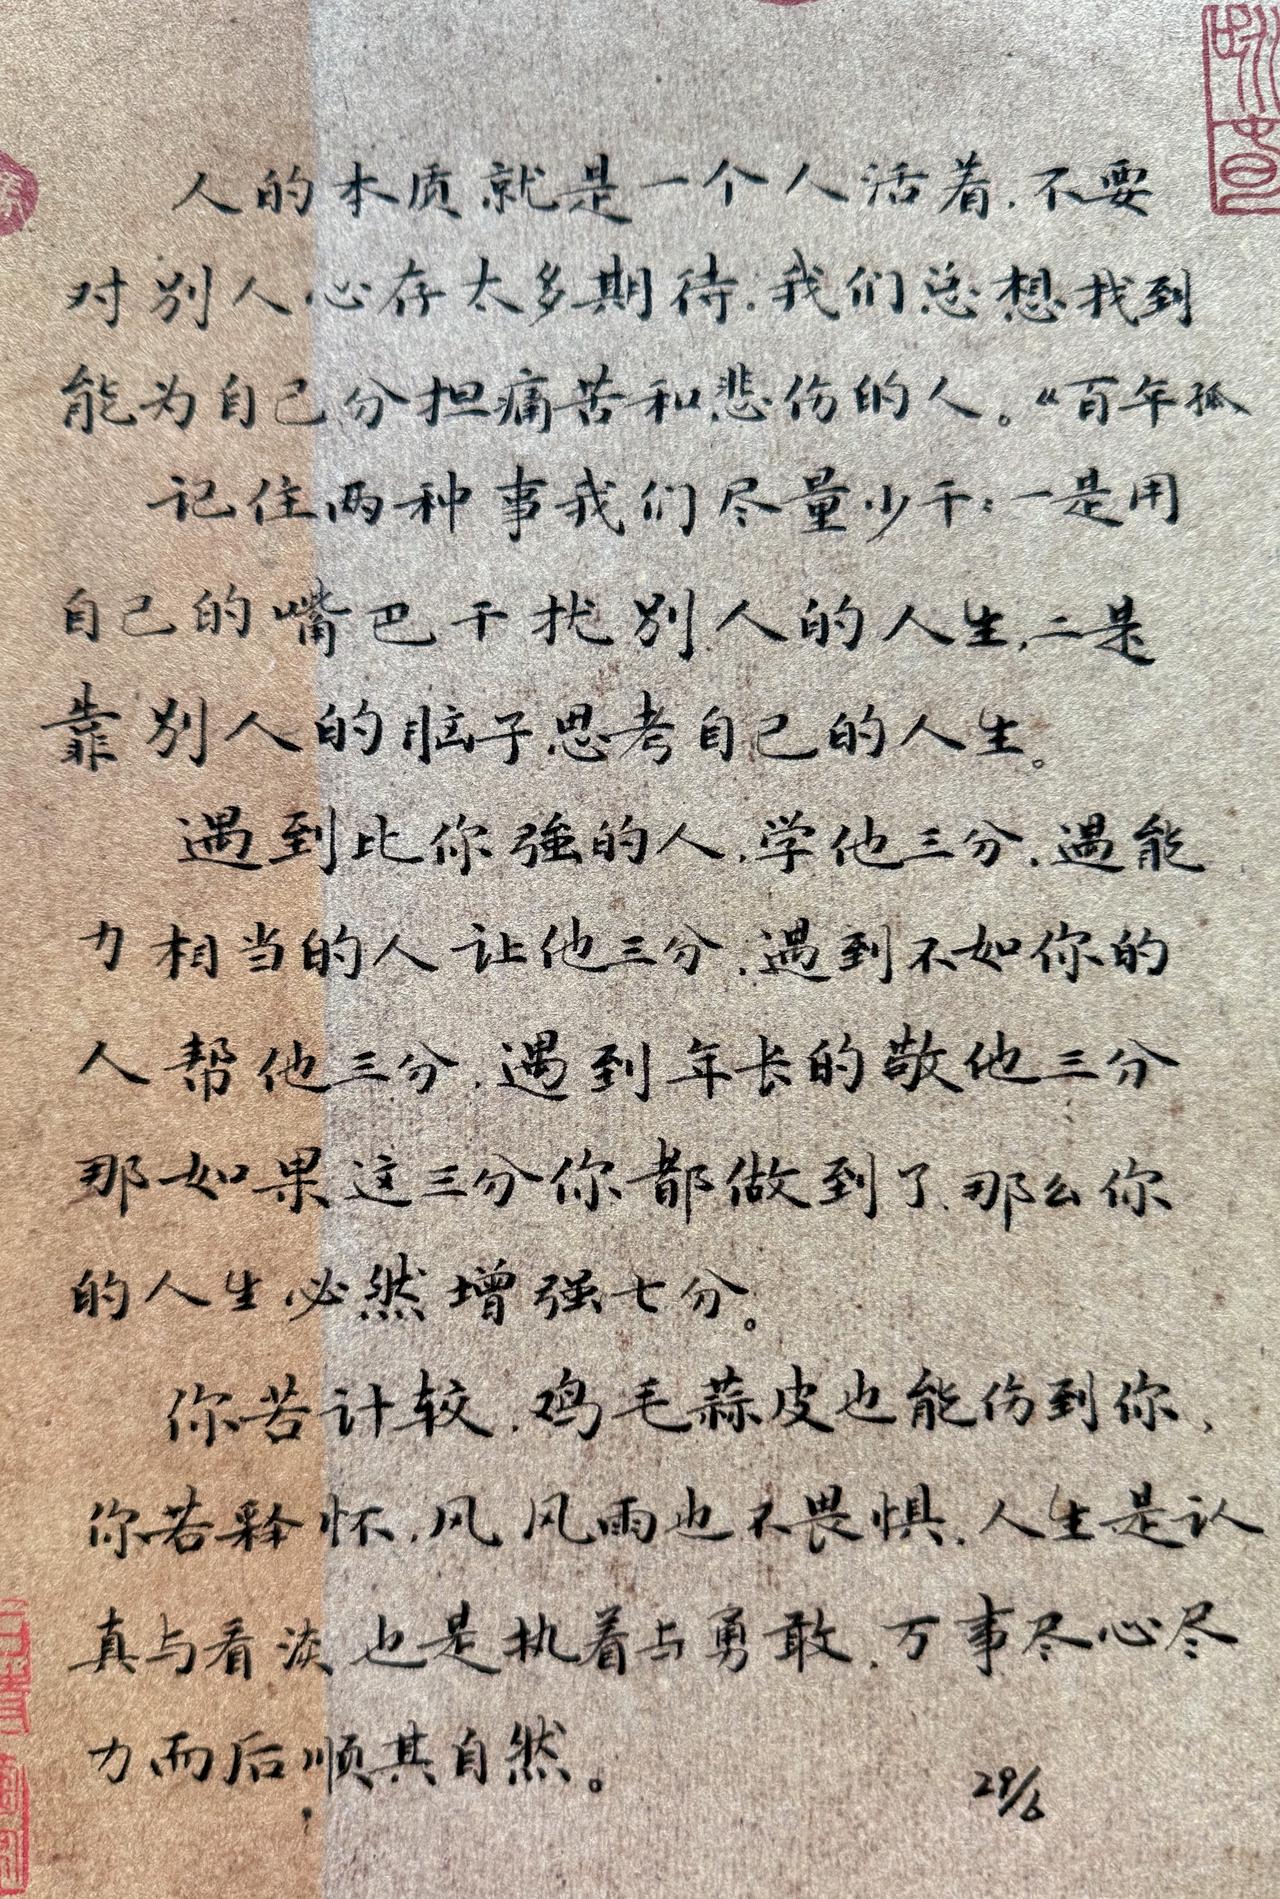 人的本质就是一个人活着.不要
对别人心存太多期待.我们总想找到
能为自己分担痛苦和悲伤的人。“百年孤
记住两种事我们尽量少干:一是用
自己的嘴巴干扰别人的人生.二是
靠别人的脑子思考自己的人生。
遇到比你强的人.学他三分.遇能
力相当的人让他三分.遇到不如你的
人帮他三分.遇到年长的敬他三分
那如果这三分你都做到了.那么你
的人生必然增强七分。
你若计较.鸡毛蒜皮也能伤到你,
你若释怀.风风雨也不畏惧.人生是认
真与看淡也是执着与勇敢.万事尽心尽
力而后顺其自然。
29/6